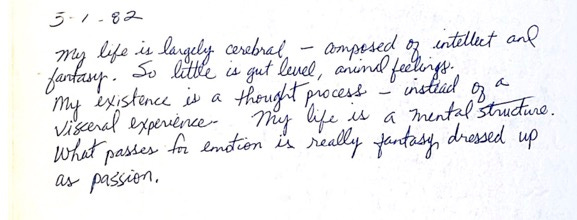 5-1-82
My life is largely cerebral – composed of intellect and
fantasy. So little is gut level, animal feelings.
My existence is a thought process – instead of a
visceral experience. My life is a mental structure.
What passes for emotion is really fantasy dressed up
as passion.